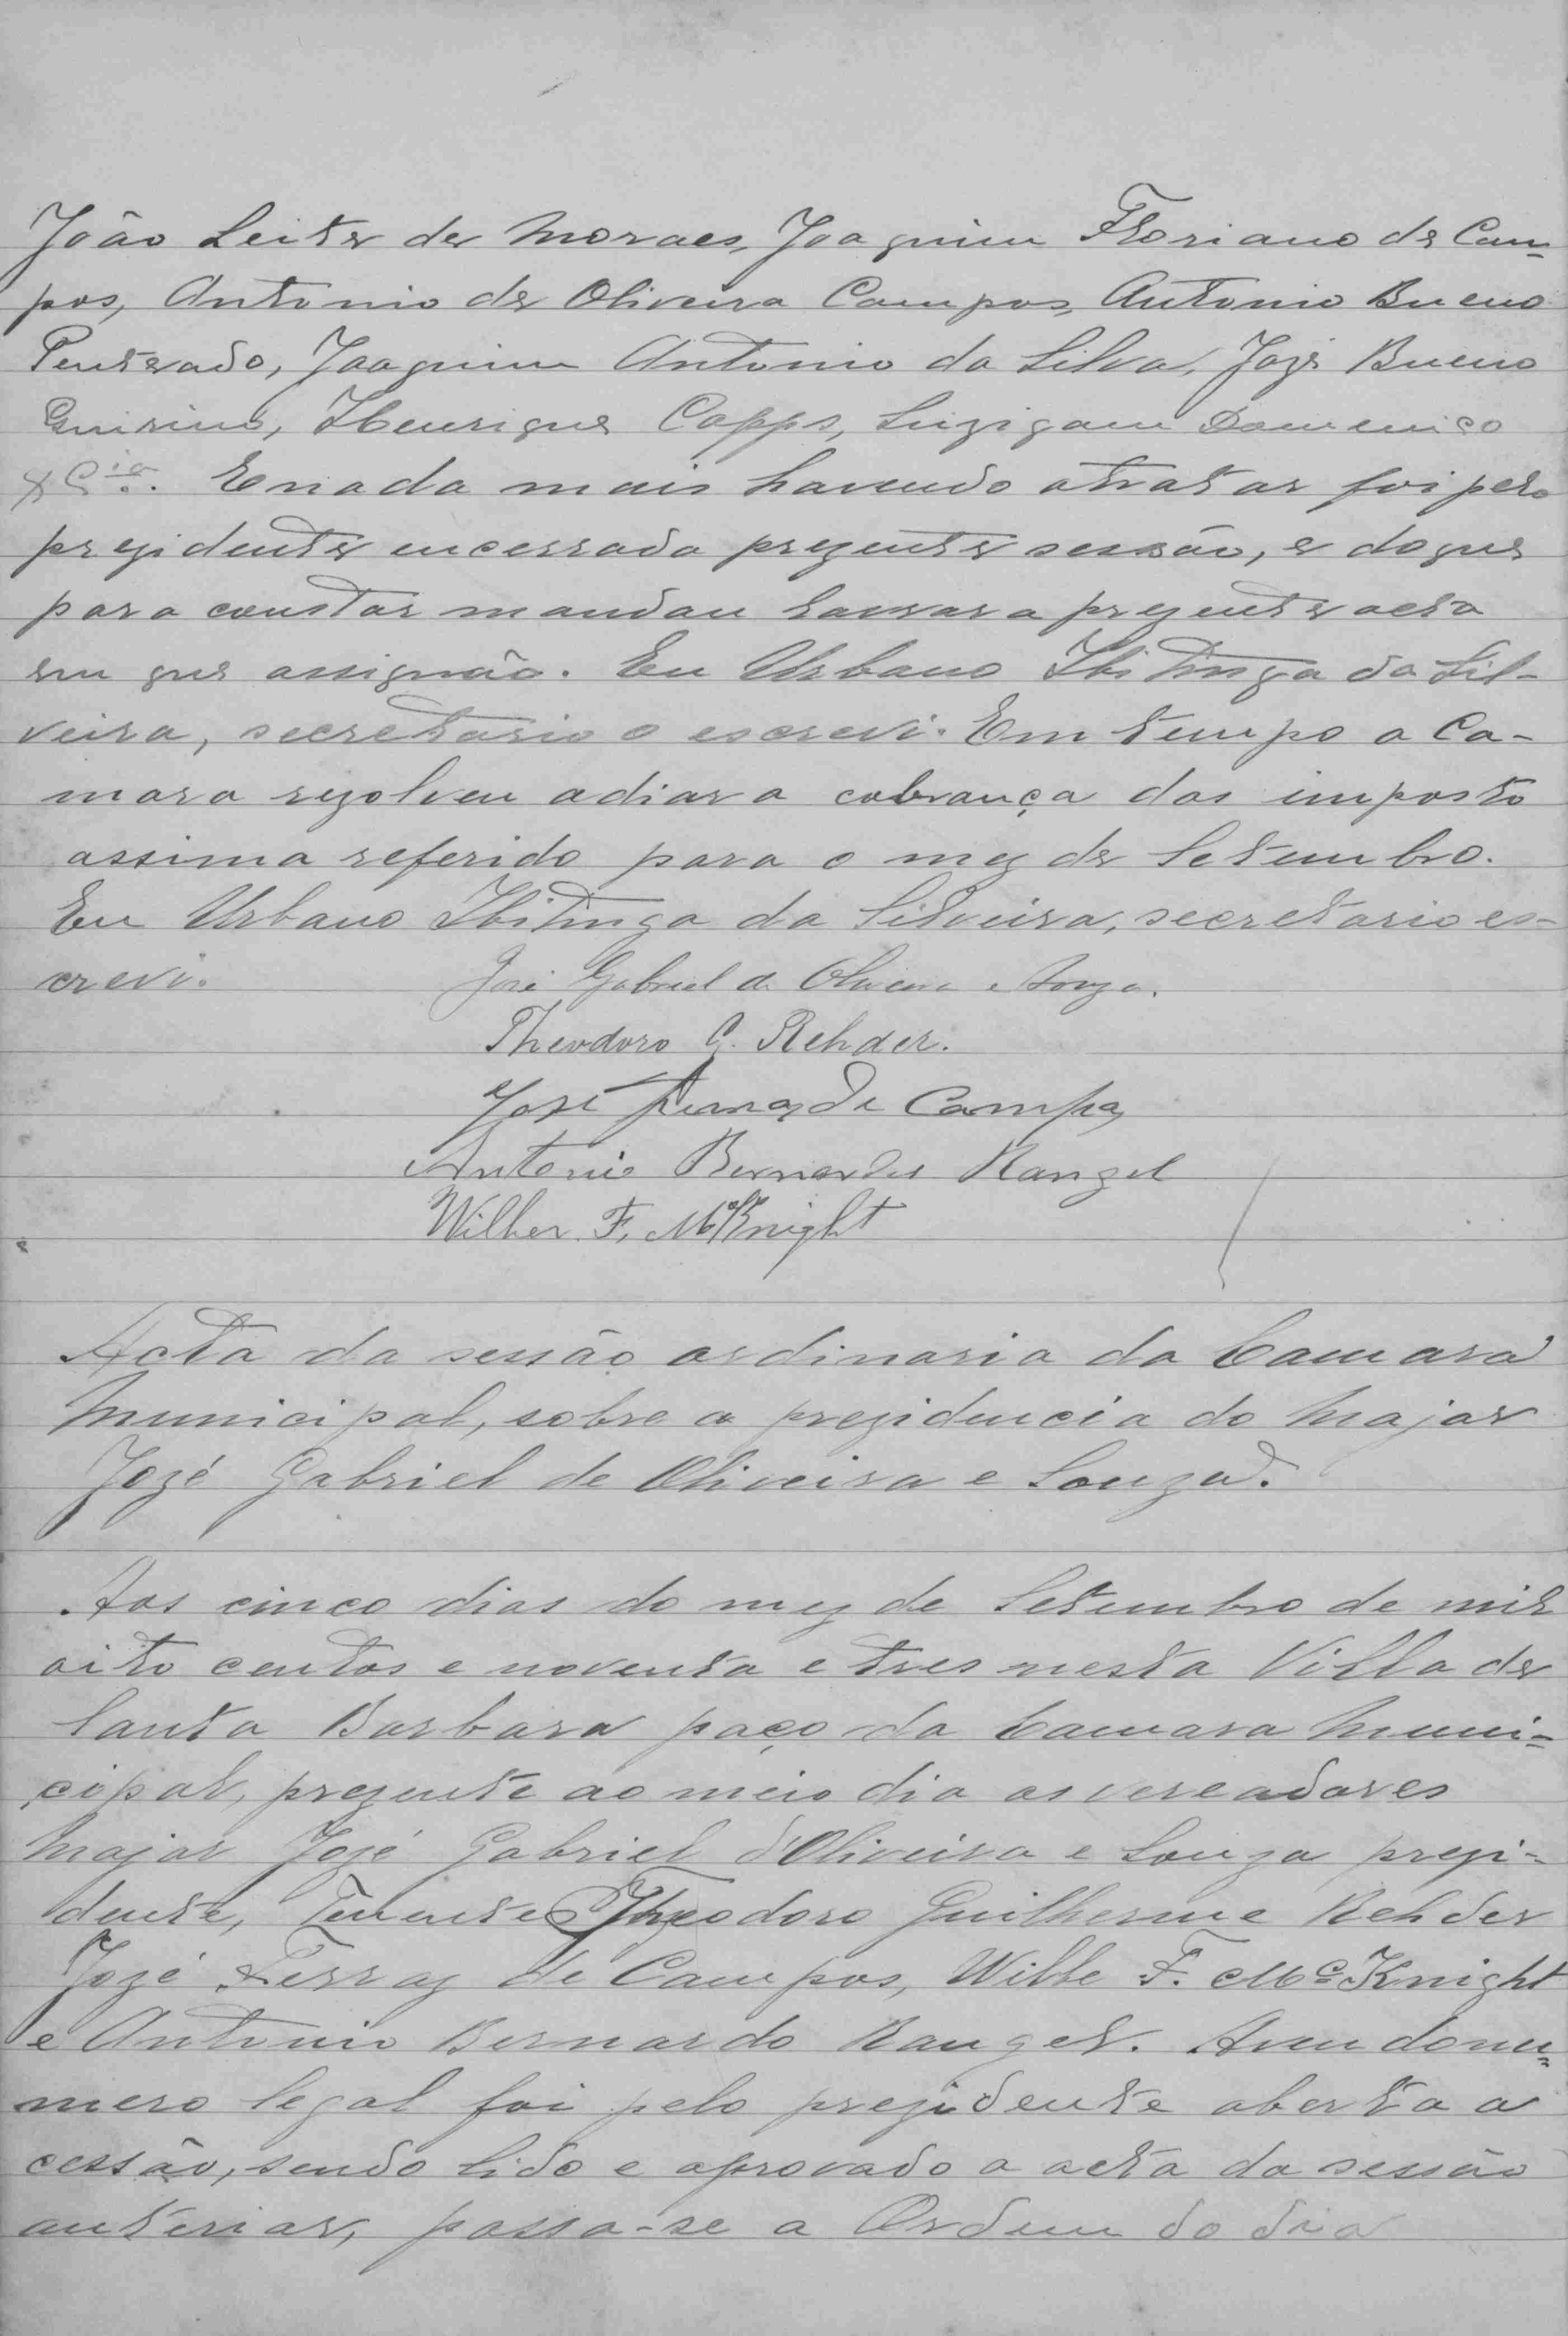 João Leite de Moraes, Joaquim Floriano de Cam-
pos, Antonio de Oliveira Campos, Antonio Bueno
Penteado, Joaquim Antonio da Silva, Jozé Bueno
Quirino, Henrique Capps, Luzigam Domenico
& Cia. E nada mais havendo a tratar foi pelo
prezidente encerrada prezente sessão, e do que
para constar mandou lavrar a prezente acta
em que assignão. Eu Urbano Ibitinga da Sil-
veira, secretario o escrevi. Em tempo a Ca-
mara rezolveu adiar a cobrança dos imposto
assima referido para o mez de Setembro.
Eu Urbano Ibitinga da Silveira, secretario es-
crevi. José Gabriel de Oliveira e Souza.
Theodoro G. Rehder.
José Ferraz de Campos
Antonio Bernardes Rangel
Wilber. F, McKnight
Acta da sessão ordinaria da Camara
Municipal, sobre a prezidencia do Major
Jozé Gabriel de Oliveira e Souza.
Aos cinco dias do mez de Setembro de mil
oito centos e noventa e tres nesta Villa de
Santa Barbara paço da Camara Muni-
cipal, prezente ao meio dia os vereadores
Major Jozé Gabriel d'Oliveira e Souza prezi-
dente, Tenente Theodoro Guilherme Rehder
Jozé Ferraz de Campos, Wilbe F. Mc Knight
e Antonio Bernardo Rangel. Avendo nu-
mero legal foi pelo prezidente aberta a
cessão, sendo lido e aprovado a acta da sessão
anterior, passa-se a Ordem do dia